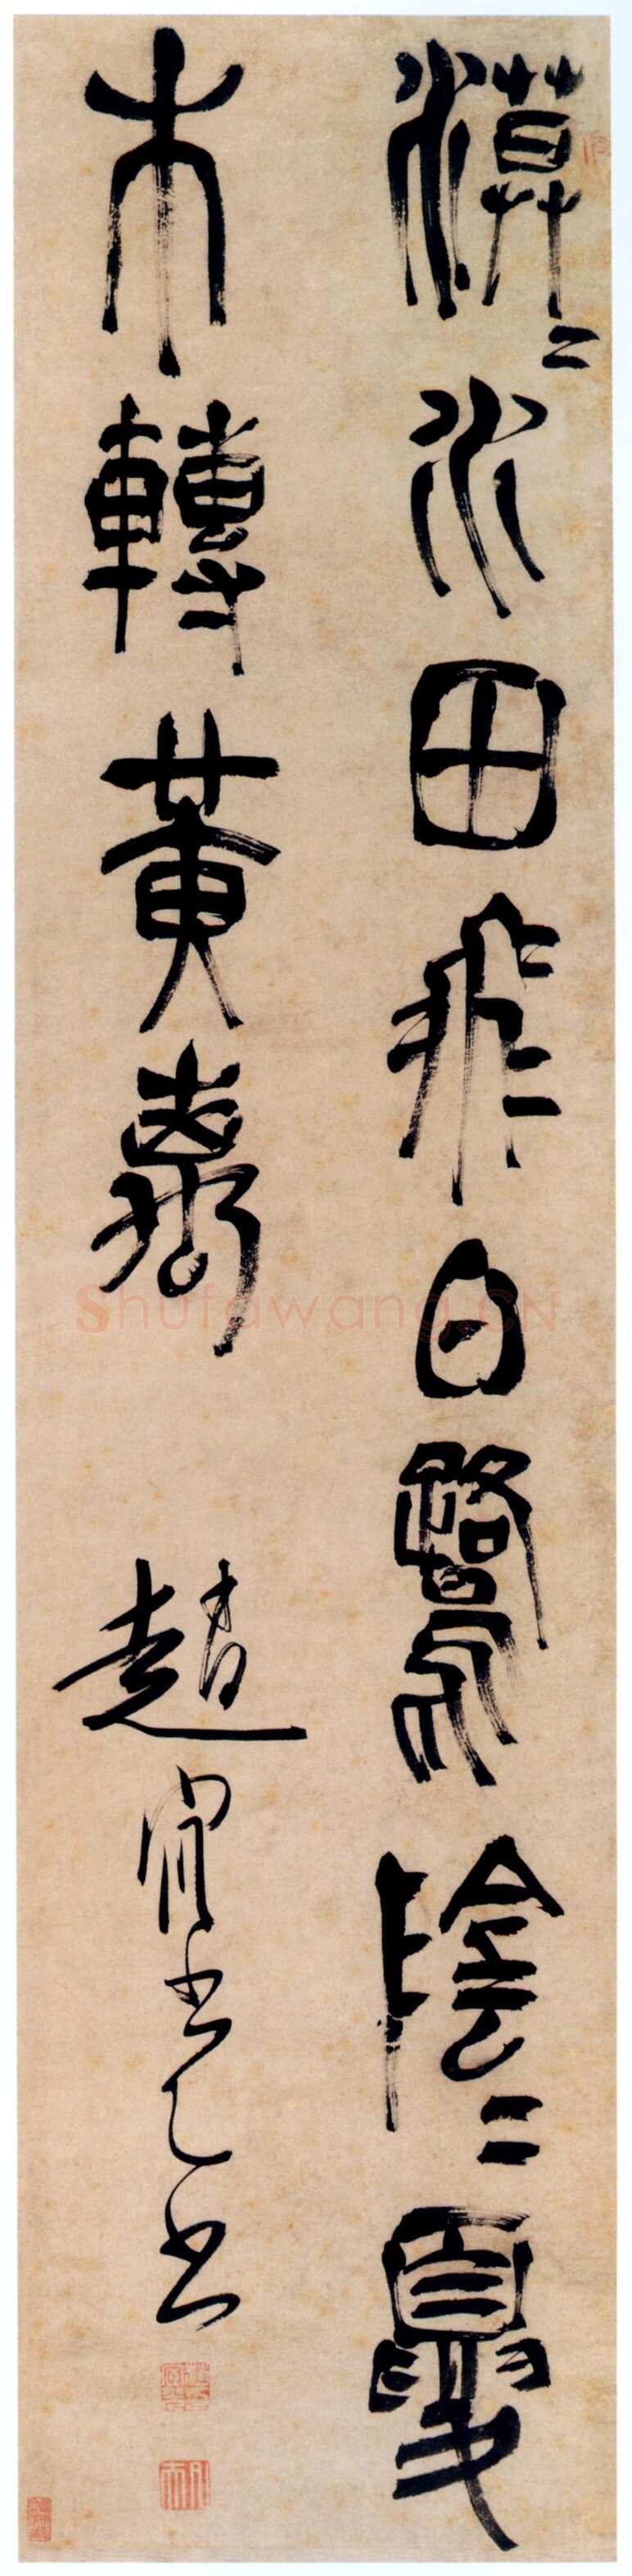 漠〻水田飛白鷺陰〻夏
木轉黃鸝
趙宧光書
Shufawang.CN